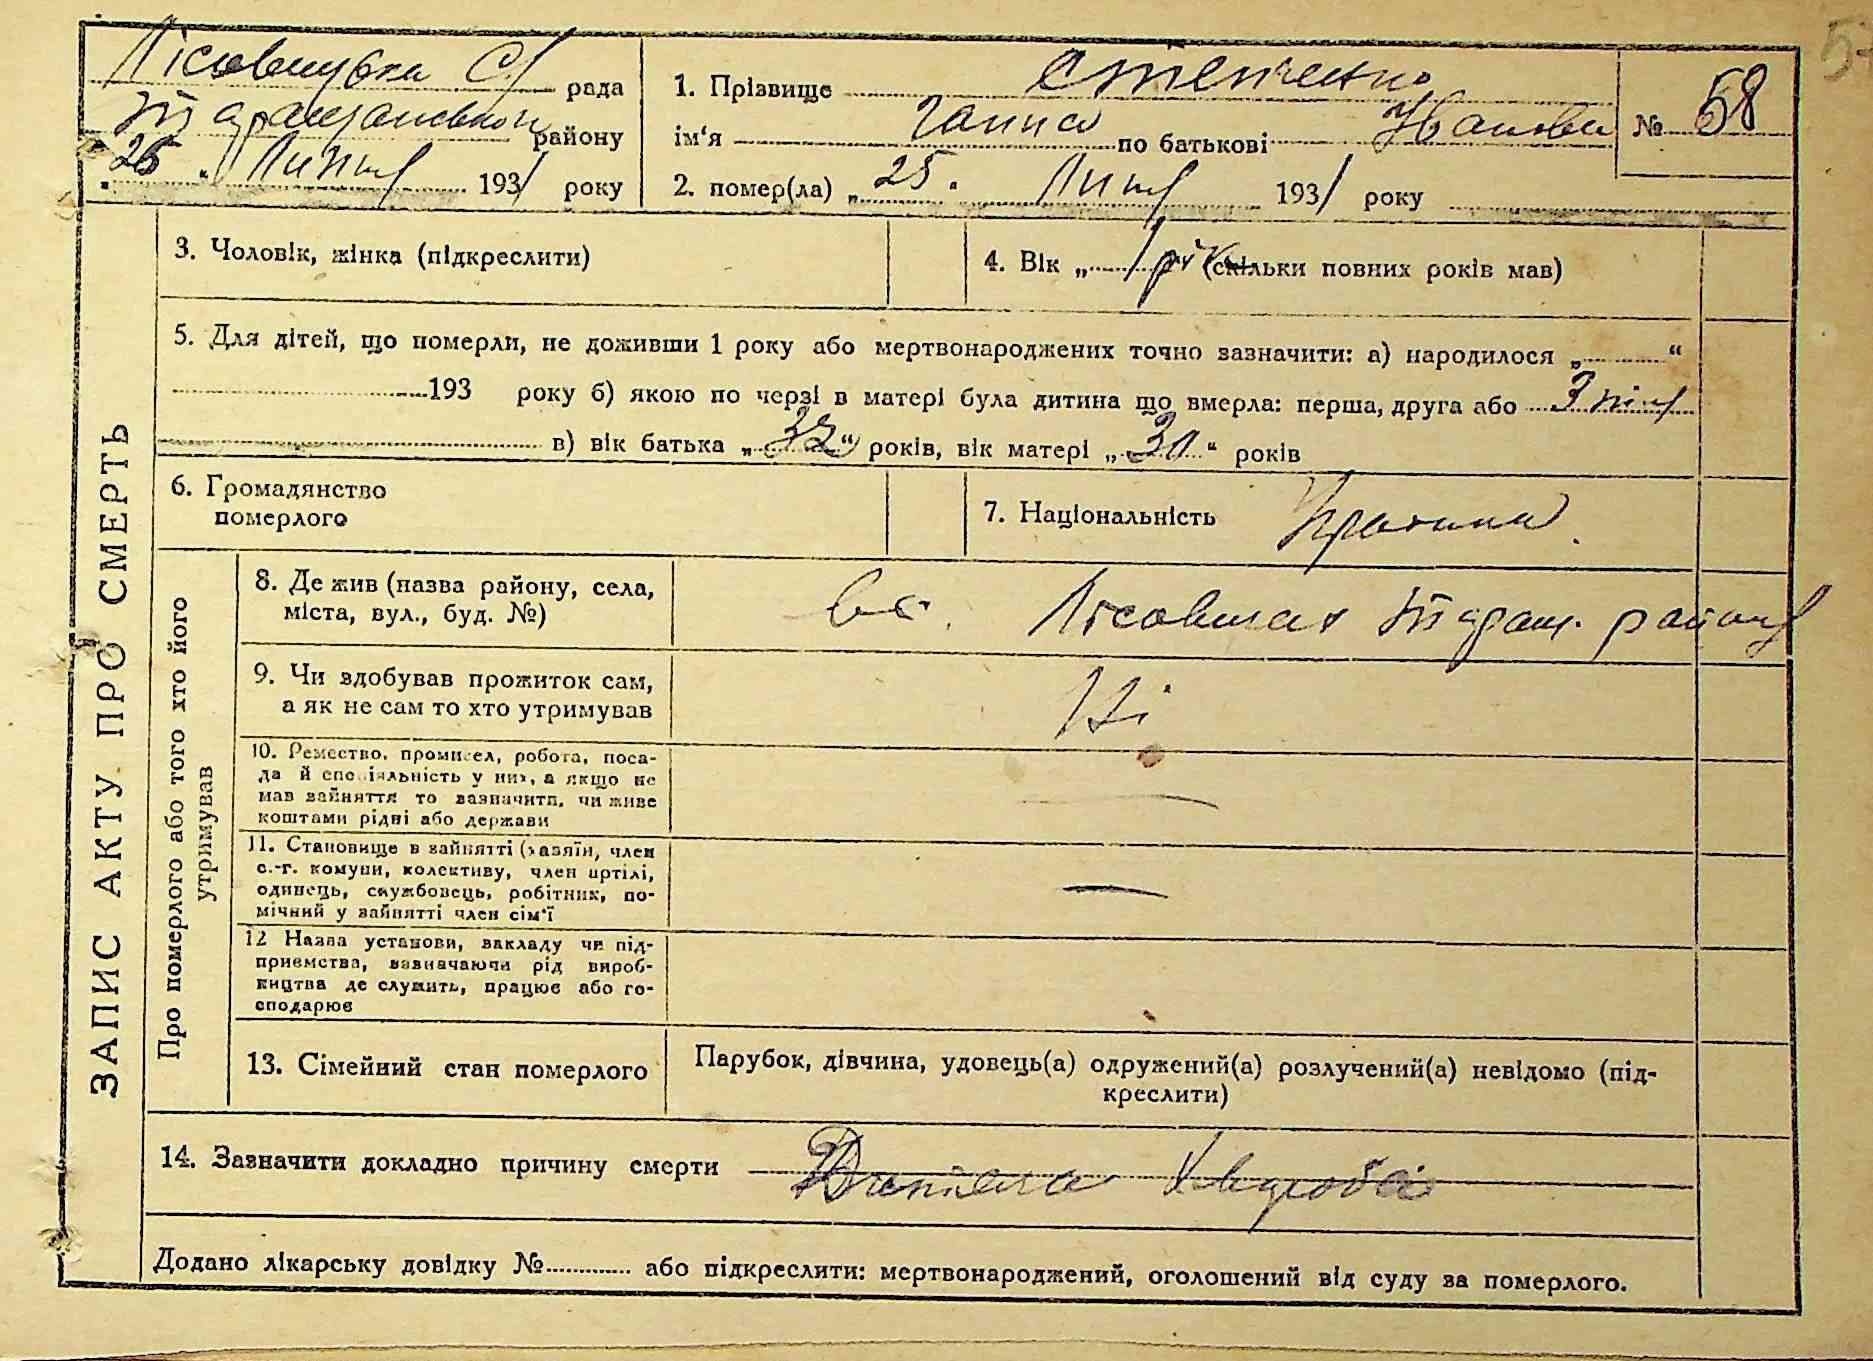 Лісовицька С/ рада
району
"26" Липня 1931 року
1. Прізвище Степченко
ім'я Ганна по батькові Іванова
№ 58
2. помер(ла) „25" Липня 1931 року
3. Чоловік, жінка (підкреслити)
4. Вік „1 рік (скільки повних років мав)
5. Для дітей, що померли, не доживши 1 року або мертвонароджених точно зазначити: а) народилося „ “
193 року б) якою по черзі в матері була дитина що вмерла: перша, друга або 3
в) вік батька „32“ років, вік матері „30“ років
6. Громадянство
померлого
7. Національність
8. Де жив (назва району, села,
міста, вул., буд. №)
в с. району
9. Чи здобував прожиток сам,
а як не сам то хто утримував
Ні
10. Ремество, промисел, робота, поса-
да й спеціяльність у них, а якщо не
мав зайняття то зазначити, чи живе
коштами рідні або держави
—
11. Становище в зайнятті (хазяїн, член
с.-г. комуни, колективу, член артілі,
одинець, службовець, робітник, по-
мічний у зайнятті член сім'ї
—
12 Назва установи, закладу чи під-
приємства, зазначаючи рід вироб-
ництва де служить, працює або го-
сподарює
13. Сімейний стан померлого
Парубок, дівчина, удовець(а) одружений(а) розлучений(а) невідомо (під-
креслити)
14. Зазначити докладно причину смерти Дитяча Хвороба
Додано лікарську довідку № або підкреслити: мертвонароджений, оголошений від суду за померлого.
ЗАПИС АКТУ ПРО СМЕРТЬ
Про померлого або того хто його
утримував